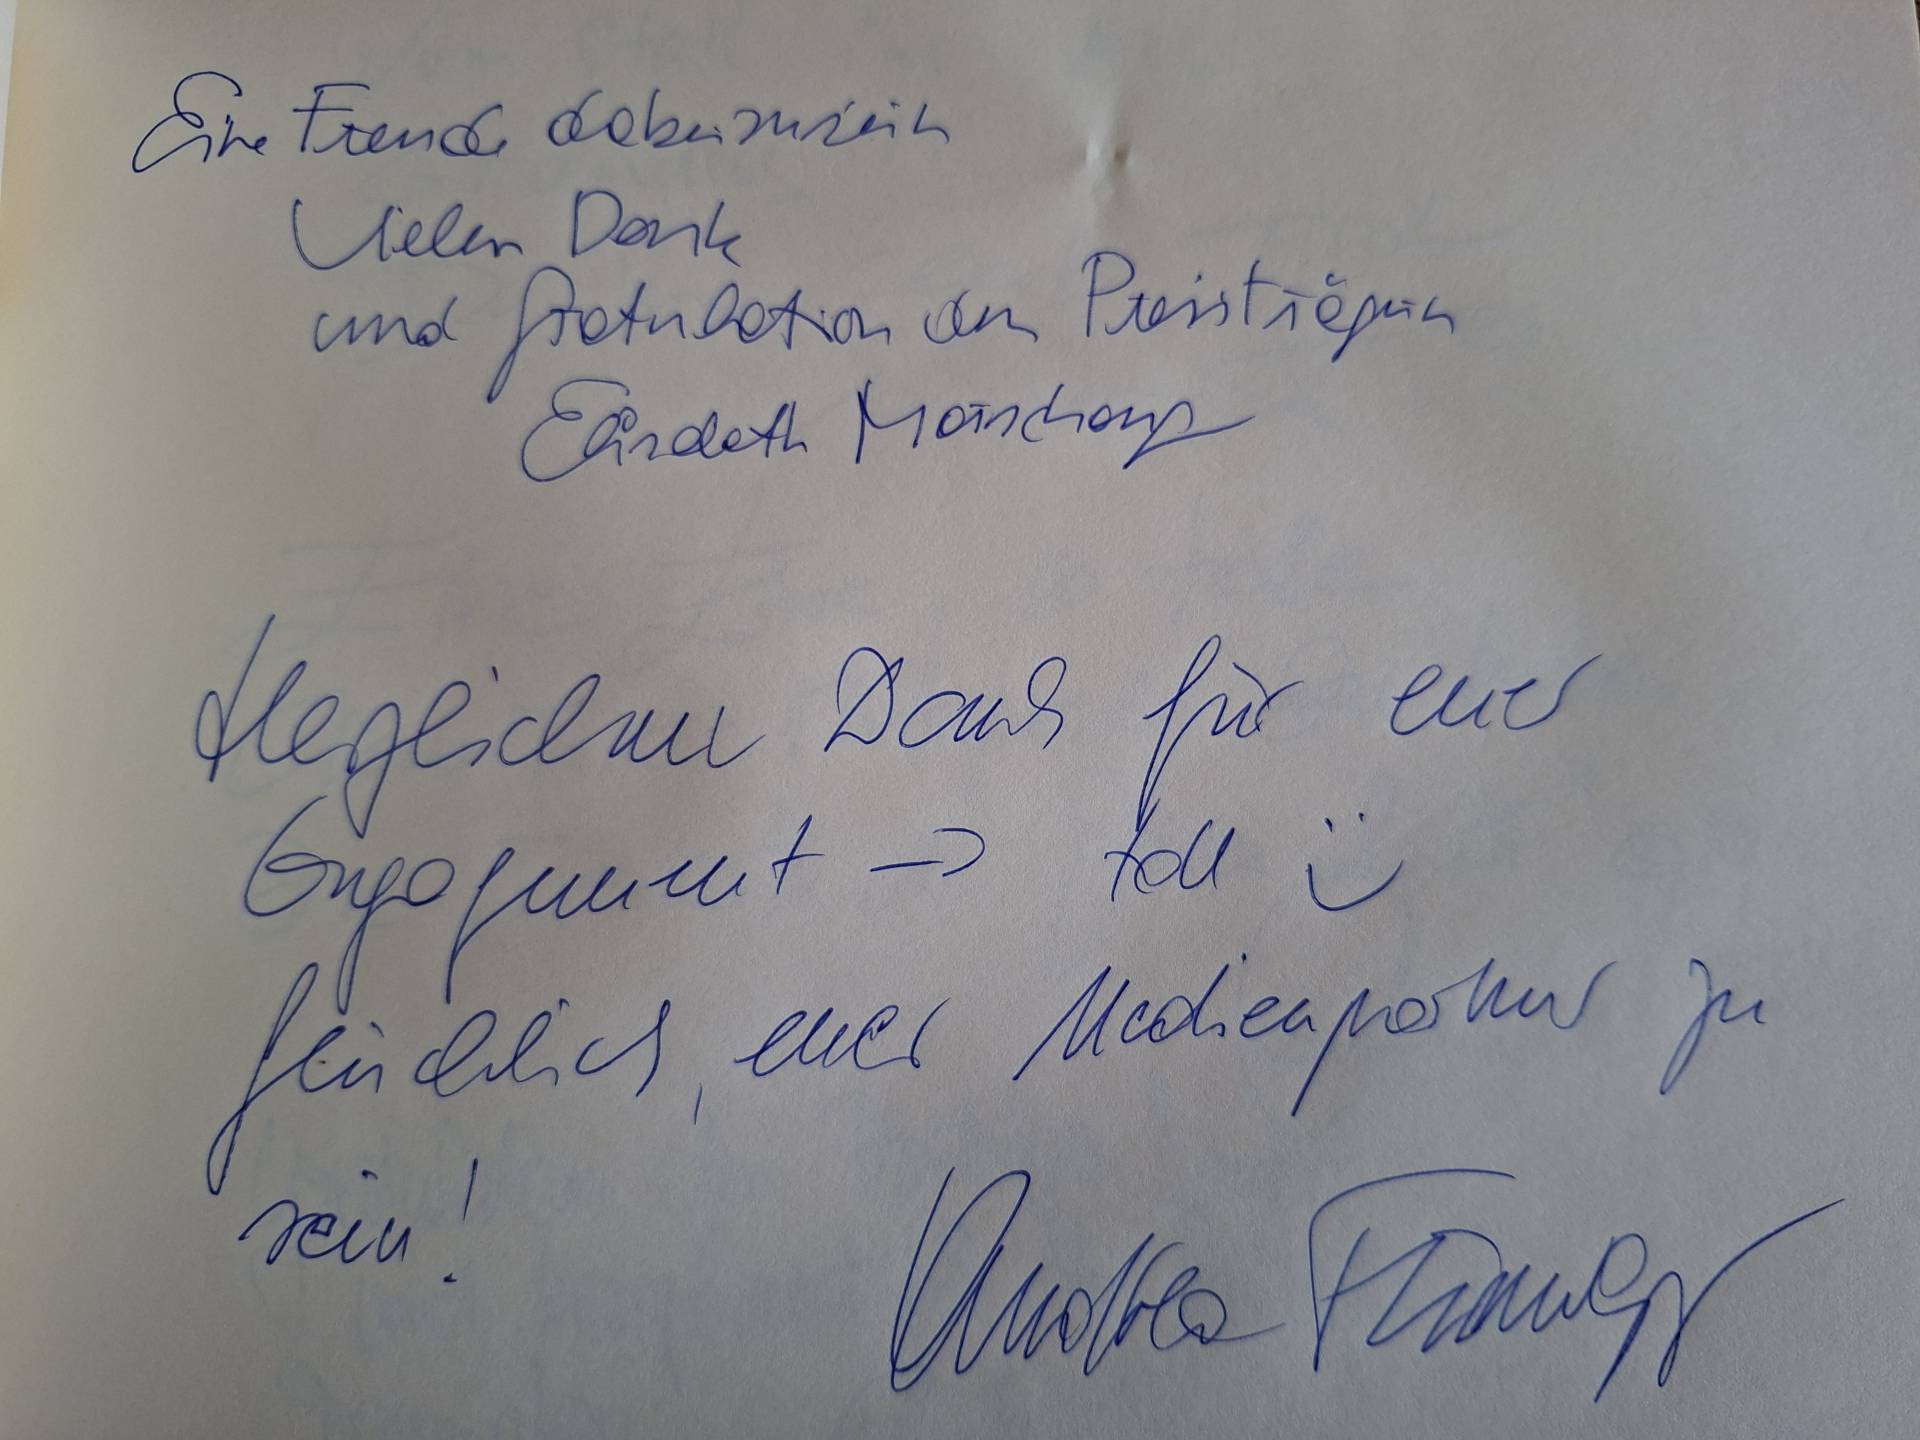 Eine Freude dabeizusein
Vielen Dank
und Gratulation den Preisträgern
Elisabeth
Herzlichen Dank für euer
Engagement → toll :)
euer Medienpartner zu
sein!
Andrea